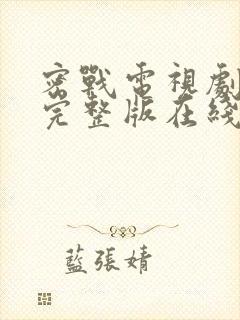 密戰電視劇
完整版在綫
藍張婧